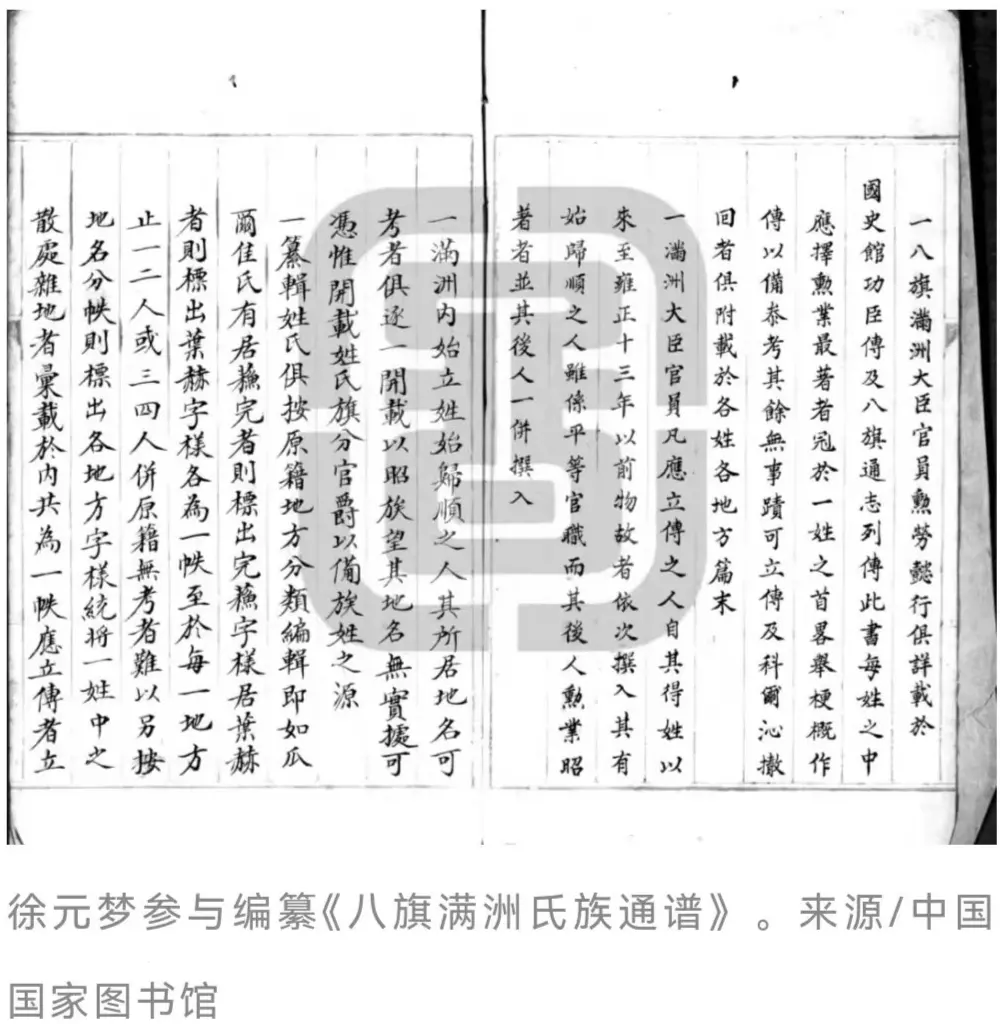 一八旗滿洲大臣官員勲勞懿行俱詳載於
國史館功臣傳及八旗通志列傳此書每姓之中
應擇勲業最著者冠於一姓之首畧舉梗概作
傳以備叅考其餘無事蹟可立傳及科爾沁撤
回者俱附載於各姓各地方篇末
一滿洲大臣官員凡應立傳之人自其得姓以
來至雍正十三年以前物故者依次撰入其有
始歸順之人雖係平等官職而其後人勲業昭
著者並其後人一併撰入
一滿洲內始立姓始歸順之人其所居地名可
考者俱逐一開載以昭族望其地名無實據可
憑惟開載姓氏旗分官爵以備族姓之源
一纂輯姓氏俱按原籍地方分類編輯即如瓜
爾佳氏有居蘓完者則標出完蘓字樣居葉赫
者則標出葉赫字樣各為一帙至於每一地方
止一二人或三四人併原籍無考者難以另按
地名分帙則標出各地方字樣統將一姓中之
散處雜地者彙載於內共為一帙應立傳者立
徐元梦参与编纂《八旗满洲氏族通谱》。来源/中国
国家图书馆